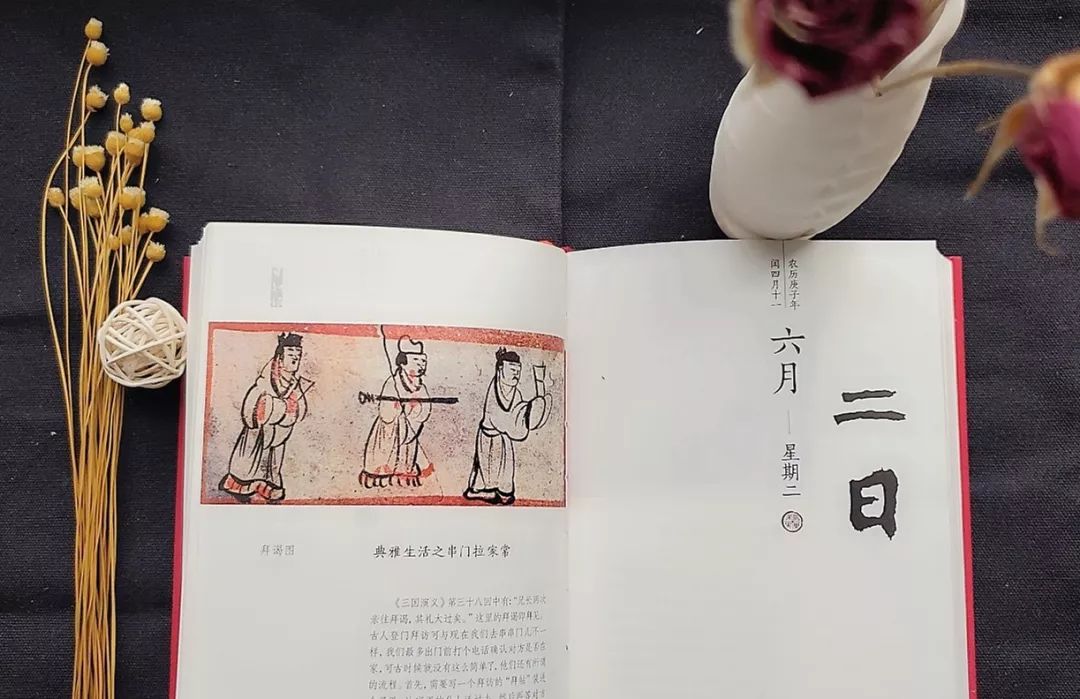 拜谒图
典雅生活之串门拉家常
《三国演义》第三十八回中有：“兄长两次
亲往拜谒，其礼太过矣。”这里的拜谒即拜见。
古人登门拜访可与现在我们去串串门儿不一
样，我们最多出门前打个电话确认对方是否在
家，可古时候就没有这么简单了，他们还有所谓
的流程。首先，需要写一个拜访的“拜帖”装进
农历庚子年
闰四月十一
六月
星期二
二日